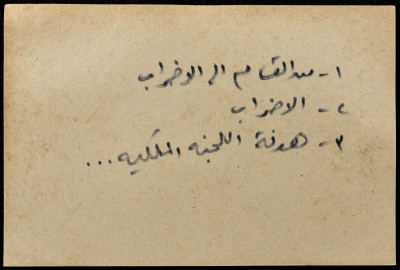 ١- من القسام الى الاضراب
٢- الاضراب
٣- هدنة اللجنه الملكيه ...